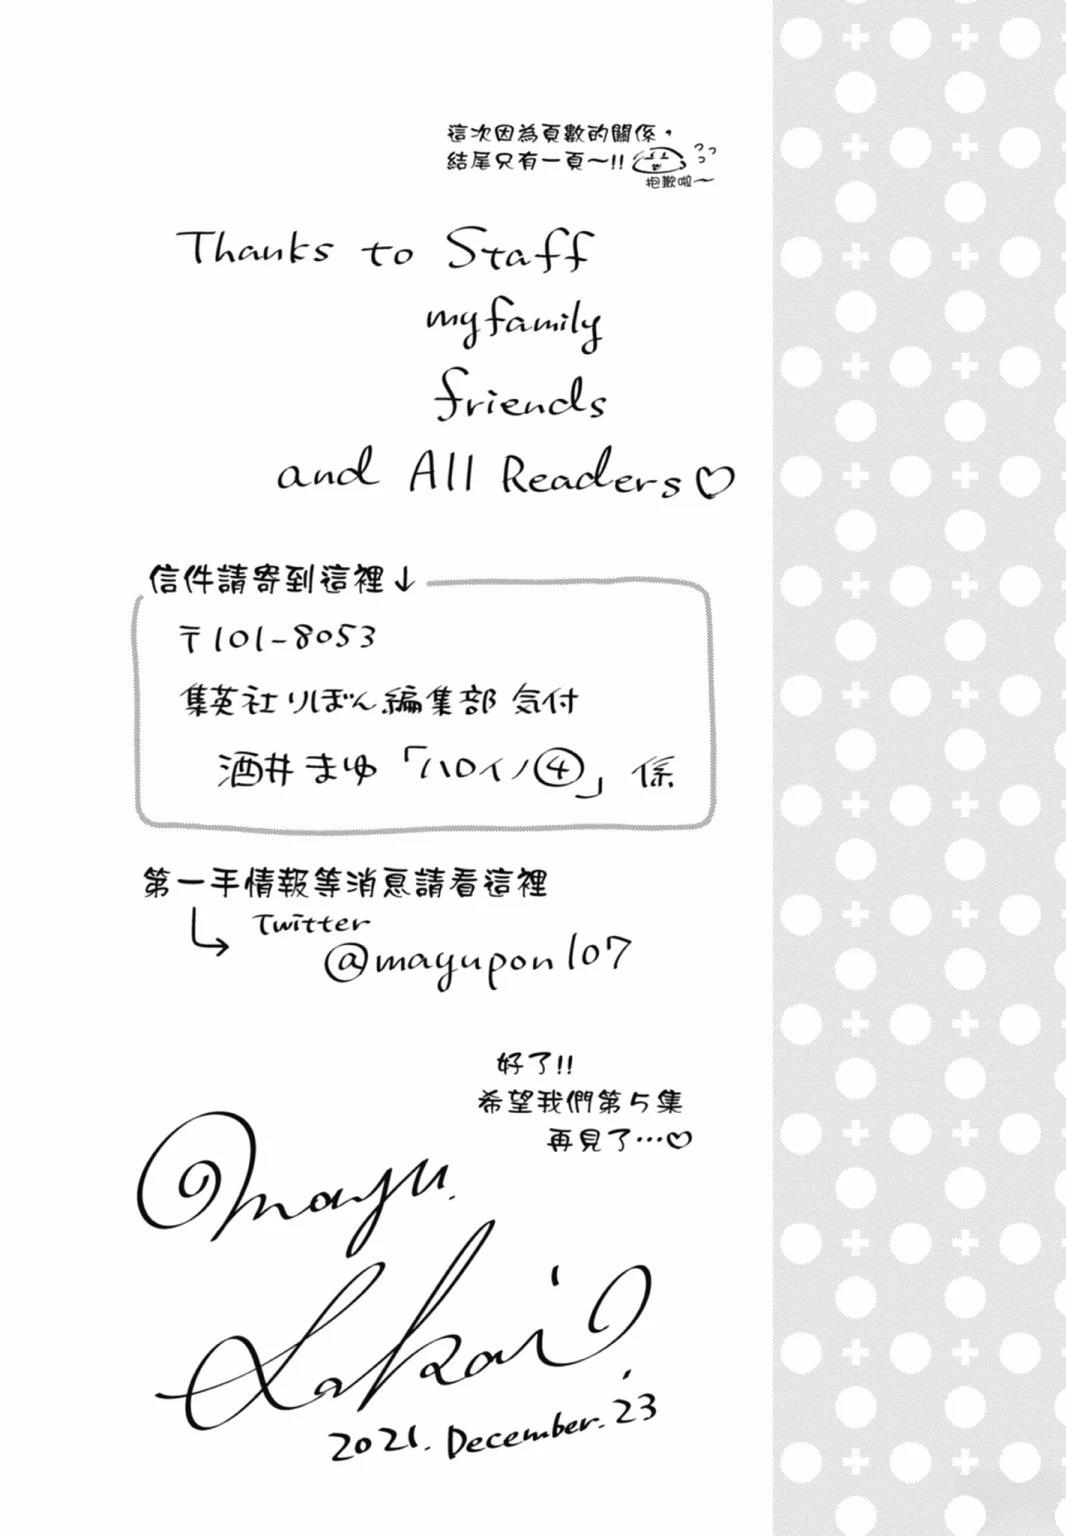 這次因為頁數的關係，
結尾只有一頁～!!
抱歉啦～
Thanks to Staff
my family
friends
and All Readers♡
信件請寄到這裡↓
〒101-8053
集英社りぼん編集部 気付
酒井まゆ「ハロイノ④」係
第一手情報等消息請看這裡
Twitter
@mayupon107
好了!!
希望我們第5集
再見了…♡
mayu.
Sakai.
2021. December. 23